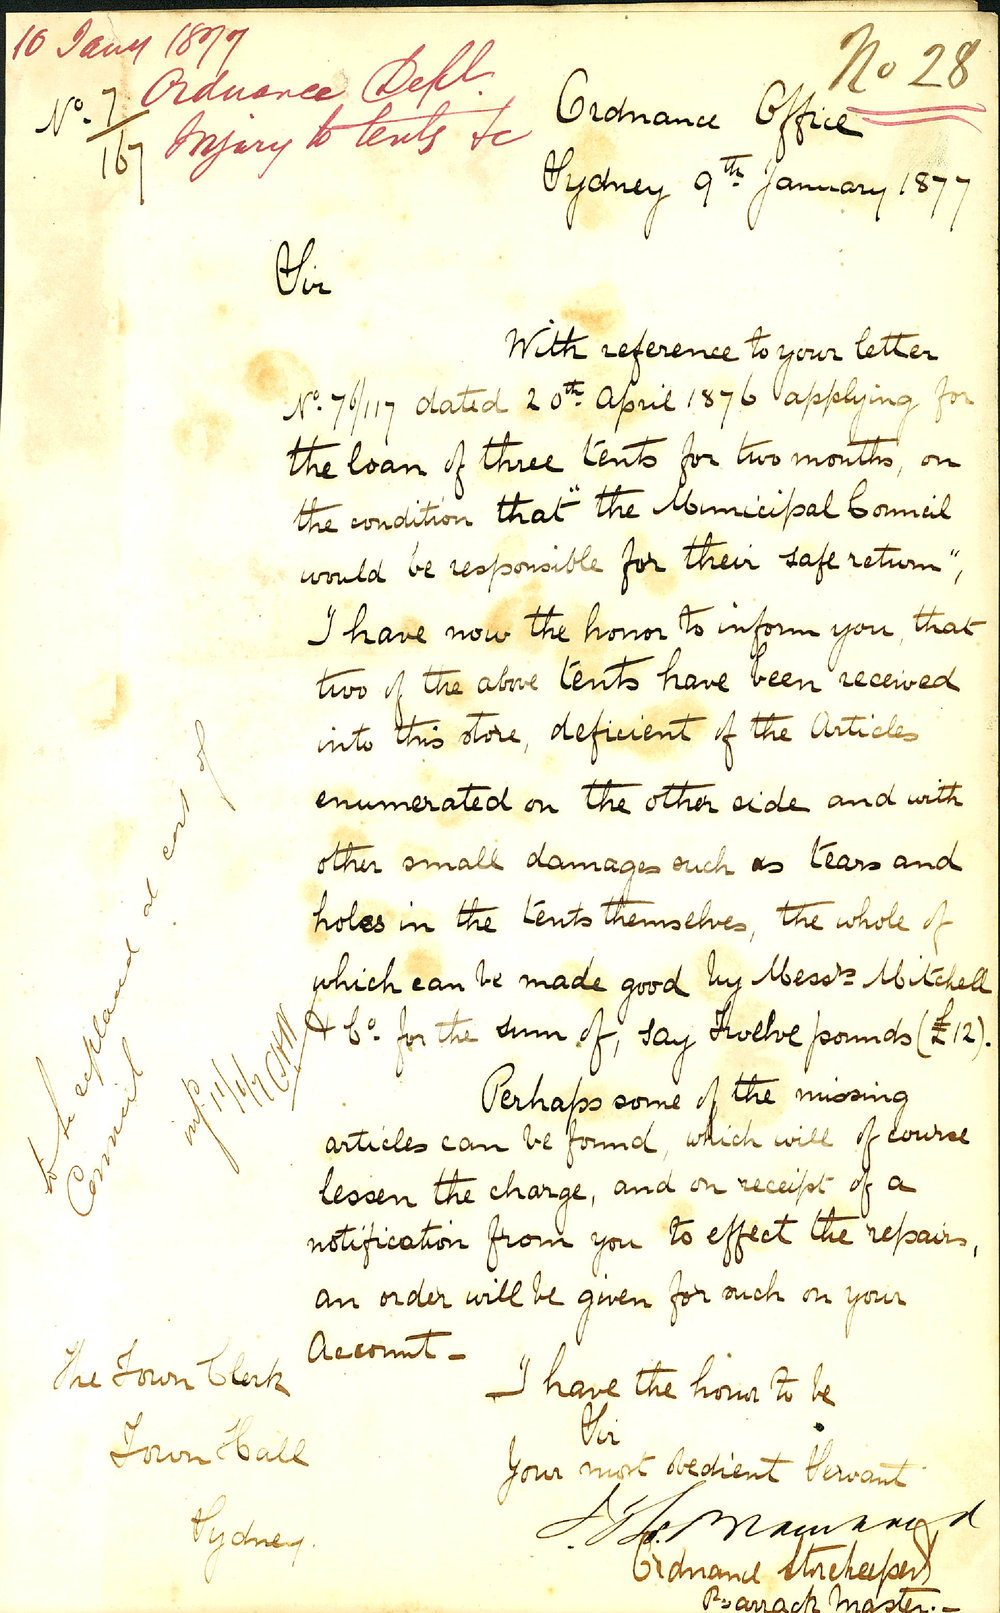 10 Jany 1877
Ordnance Dept.
Injury to tents &c
No. 7/167
No 28
Ordnance Office
Sydney 9th January 1877
Sir
With reference to your letter
No. 76/117 dated 20th April 1876 applying for
the loan of three tents for two months, on
the condition that "the Municipal Council
would be responsible for their safe return",
I have now the honor to inform you, that
two of the above tents have been received
into this store, deficient of the Articles
enumerated on the other side and with
other small damages such as tears and
holes in the tents themselves, the whole of
which can be made good by Messrs Mitchell
& Co. for the sum of, say Twelve pounds (£12).
Perhaps some of the missing
articles can be found, which will of course
lessen the charge, and on receipt of a
notification from you to effect the repairs,
an order will be given for such on your
Account -
I have the honor to be
Sir
Your most obedient Servant
Ordnance Storekeeper
Barrack Master. -
The Town Clerk
Town Hall
Sydney.
to be replaced at cost of
Council